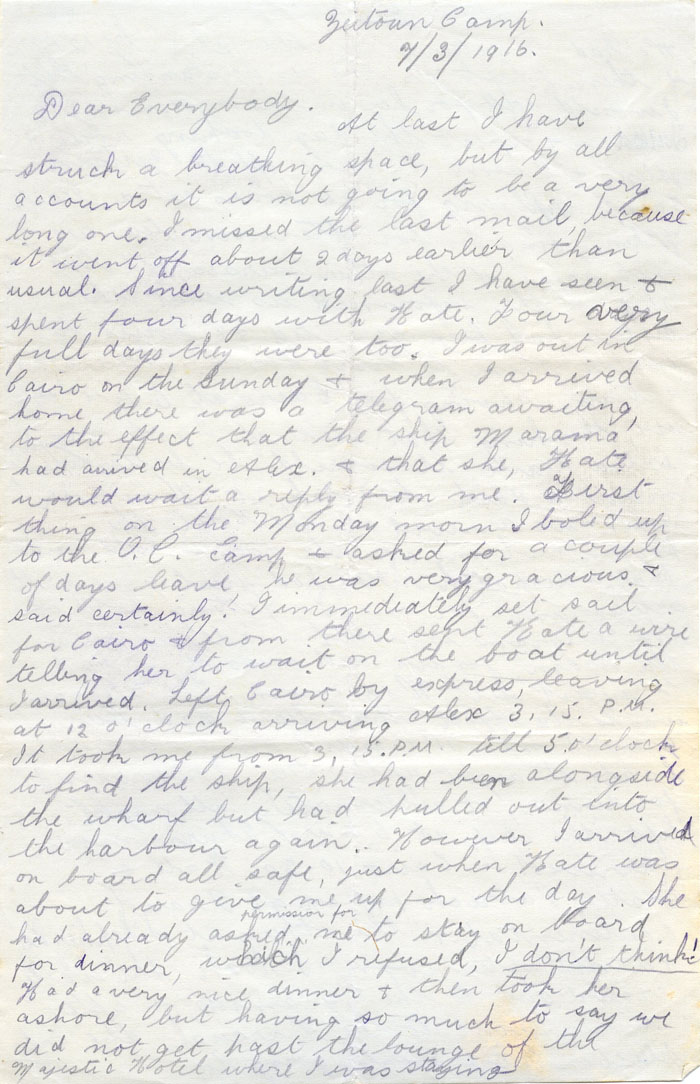 Zeitoun Camp.
7/3/1916.
Dear Everybody.
At last I have
struck a breathing space, but by all
accounts it is not going to be a very
long one. I missed the last mail, because
it went off about 2 days earlier than
usual. Since writing last I have seen &
spent four days with Kate. Four very
full days they were too. I was out in
Cairo on the Sunday & when I arrived
home there was a telegram awaiting,
to the effect that the ship Marama
had arrived in Alex. & that she, Kate
would wait a reply from me. First
thing on the Monday morn I boled up
to the O.C. Camp & asked for a couple
of days leave, he was very gracious &
said certainly! I immediately set sail
for Cairo & from there sent Kate a wire
telling her to wait on the boat until
I arrived. Left Cairo by express, leaving
at 12 o'clock arriving Alex 3,15. P.M.
It took me from 3,15. P.M. till 5 o'clock
to find the ship, she had been alongside
the wharf but had pulled out into
the harbour again. However I arrived
on board all safe, just when Kate was
about to give me up for the day. She
had already asked permission for me to stay on board
for dinner, which I refused, I don't think!
Had a very nice dinner & then took her
ashore, but having so much to say we
did not get past the lounge of the
Majestic Hotel where I was staying